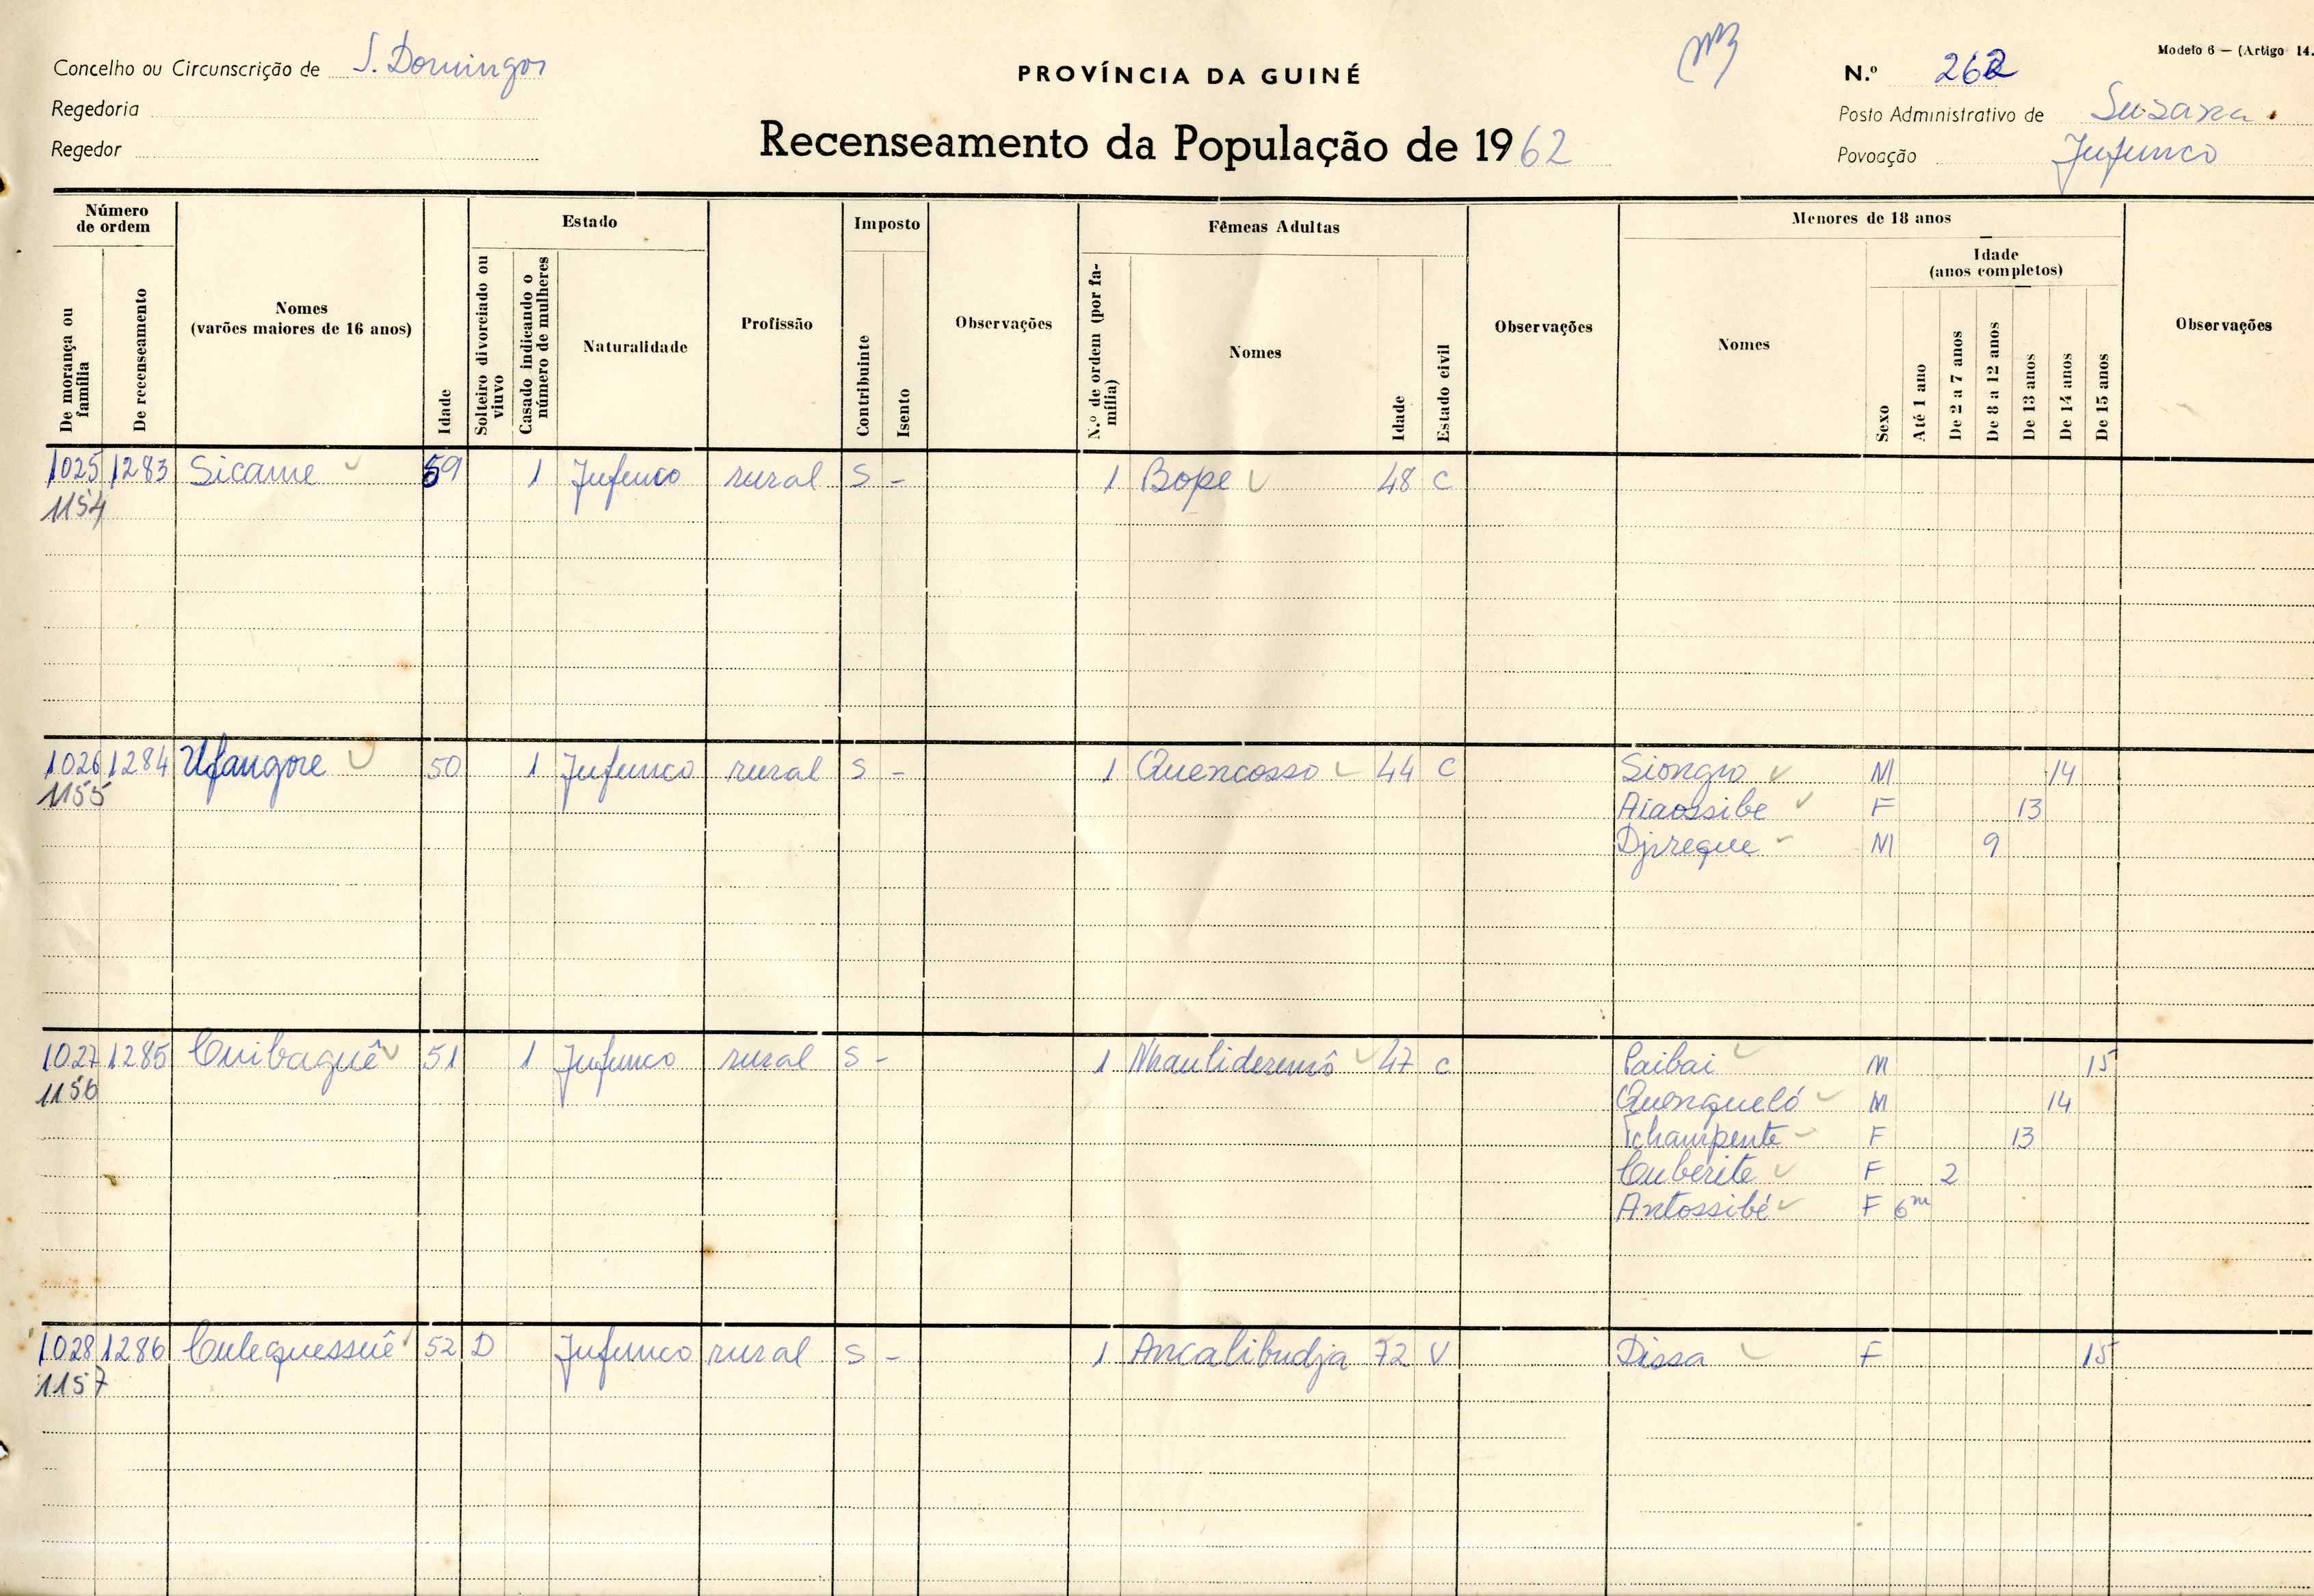 Modelo 6 — (Artigo 14.
Concelho ou Circunscrição de S. Domingos
PROVÍNCIA DA GUINÉ
N.º 262
Regedoria
Posto Administrativo de Suzana
Regedor
Recenseamento da População de 1962
Povoação Jufunco
Número de ordem
De morança ou família
De recenseamento
Nomes
(varões maiores de 16 anos)
Idade
Estado
Solteiro divorciado ou viuvo
Casado indicando o número de mulheres
Naturalidade
Profissão
Imposto
Contribuinte
Isento
Observações
Fêmeas Adultas
N.º de ordem (por família)
Nomes
Idade
Estado civil
Observações
Menores de 18 anos
Nomes
Sexo
Idade
(anos completos)
Até 1 ano
De 2 a 7 anos
De 8 a 12 anos
De 13 anos
De 14 anos
De 15 anos
Observações
1025 1283 Sicame 59 1 Jufunco rural S - 1 Bope 48 C
1154
1026 1284 Ufangore 50 1 Jufunco rural S - 1 Quencosso 44 C Siongro M 14
1155 Aiaossibe F 13
Djireque M 9
1027 1285 Cuibaguê 51 1 Jufunco rural S - 1 47 C Paibai M 15
1156 Quenqueló M 14
Tchampente F 13
Cuberite F 2
Antossibé F 6m
1028 1286 Culequessuê 52 D Jufunco rural S - 1 Ancalibudja 72 V Dissa F 15
1157